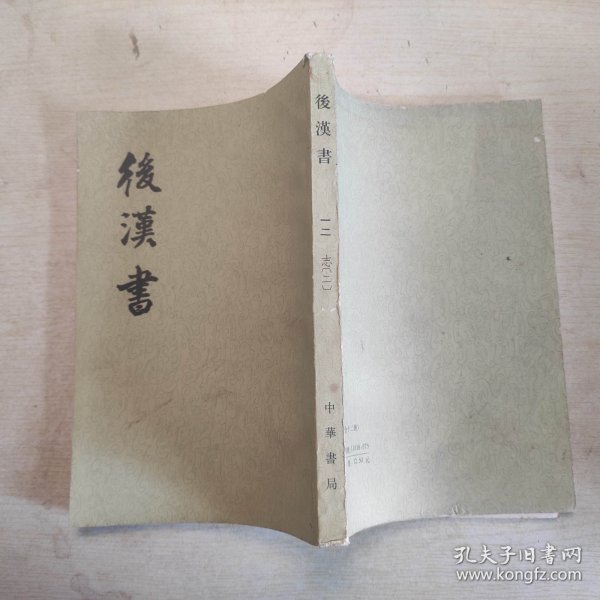 後漢書
後漢書
一二
志〔二〕
中華書局
孔夫子旧书网
www.kongfz.com